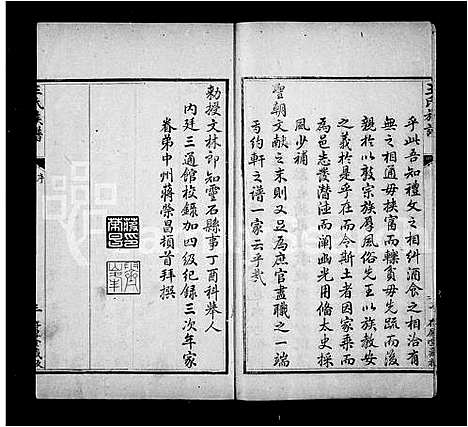 乎此吾知禮文之相糾酒食之相洽有
無之相通毋挾富而轢貧毋先疏而後
親於以敦宗族厚風俗先王以族教安
之義於是乎在而令斯土者因家乗而
為邑志叢潛德而闡幽光用俻太史採
風少補
聖朝文献之末則又足為庶官盡職之一端
丂約軒之譜一家云乎㦲
勅授文林郎知靈石縣事丁酉科舉人
內廷三通館校錄加四級紀錄三次年家
眷弟中州蔣榮昌頓首拜撰
王氏族譜
序